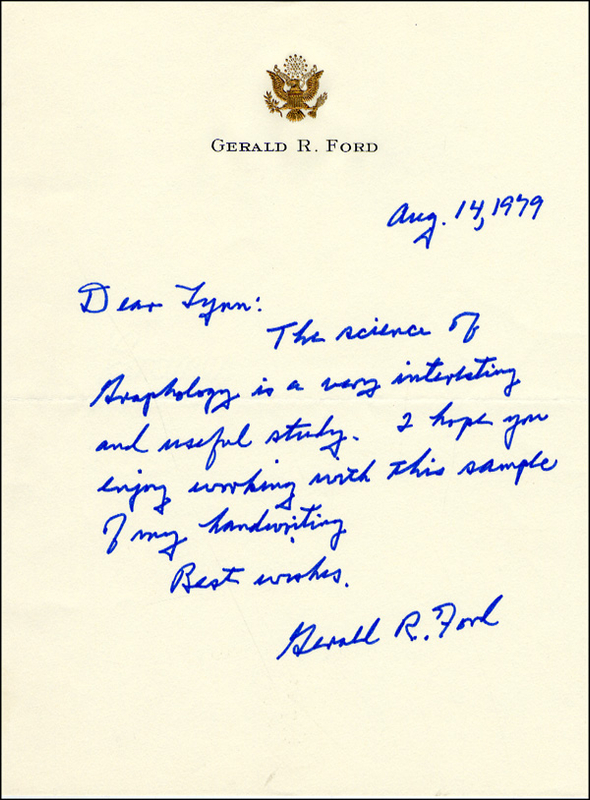 GERALD R. FORD
Aug. 14, 1979
Dear Lynn:
The science of
Graphology is a very interesting
and useful study. I hope you
enjoy working with this sample
of my handwriting
Best wishes.
Gerald R. Ford